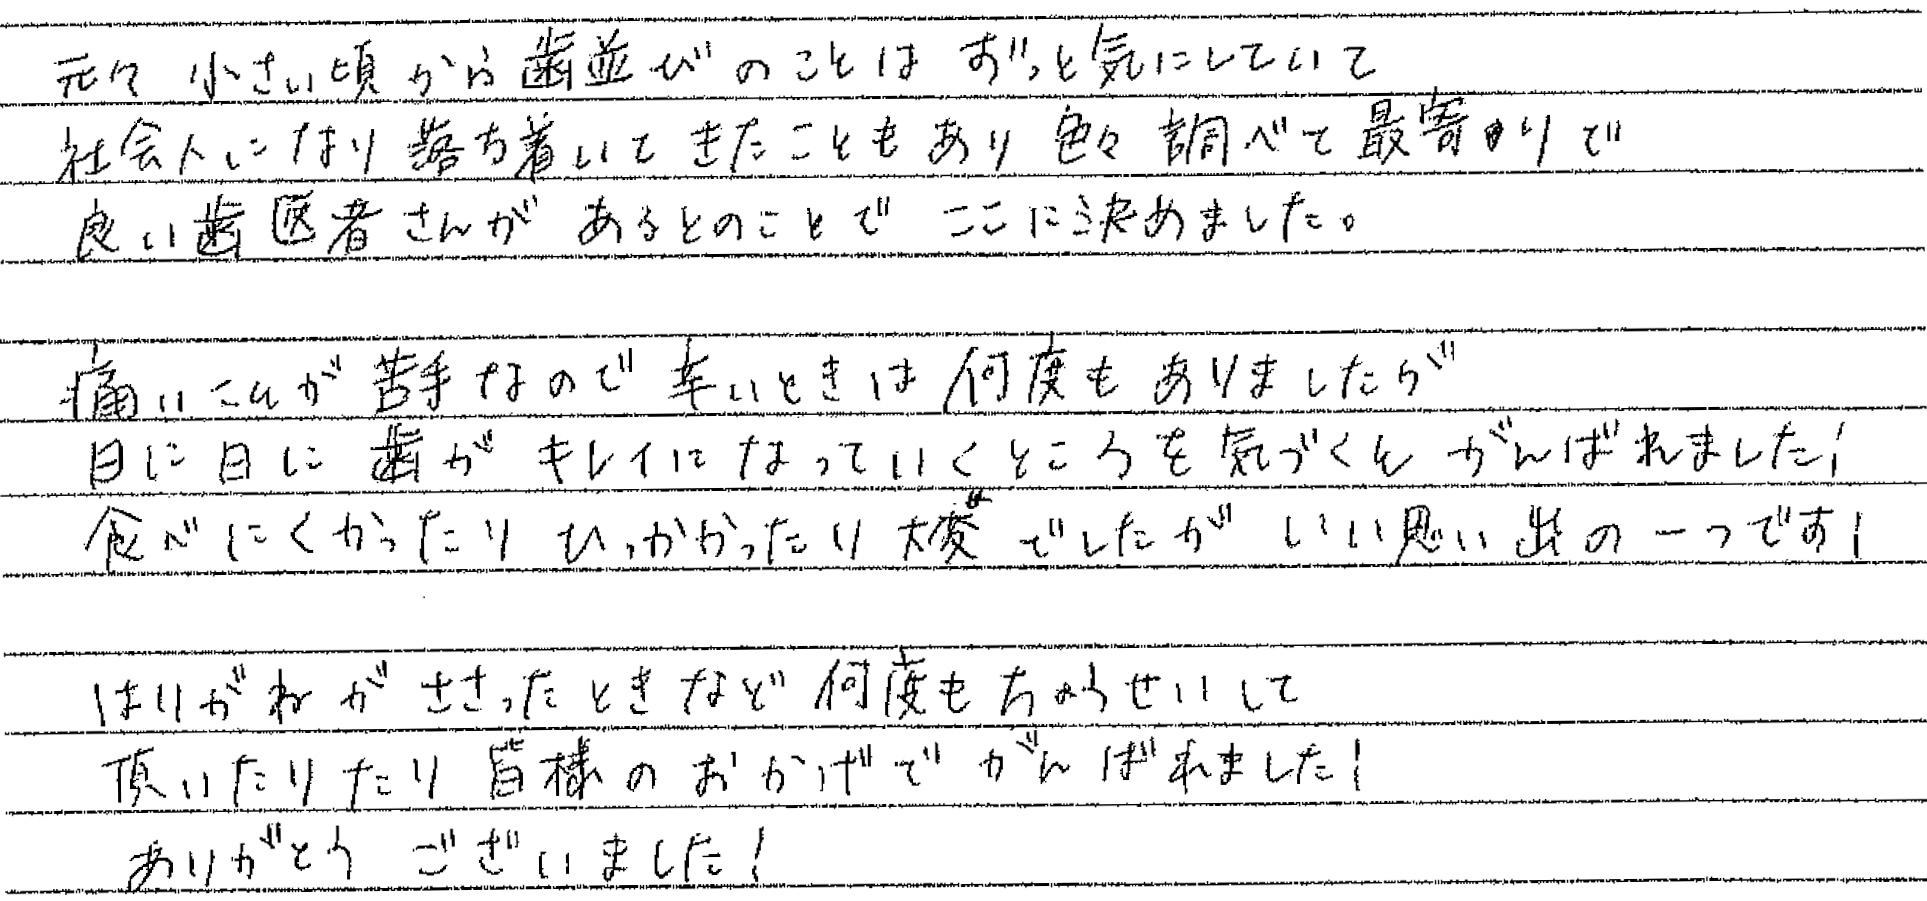 元々 小さい頃から歯並びのことは ずっと気にしていて
社会人になり 落ち着いてきたこともあり 色々 調べて最寄りで
良い歯医者さんが あるとのことで ここに決めました。
痛いこんが 苦手なので 辛いときは 何度も ありましたが
日に日に 歯が キレイになっていくところを 気づくん がんばれました!
食べにくかったり ひっかかったり 大変でしたが いい思い出の一つです!
はりがねが ささったときなど 何度も ちょうせいして
頂いたりたり 皆様のおかげで がんばれました!
ありがとう ございました!